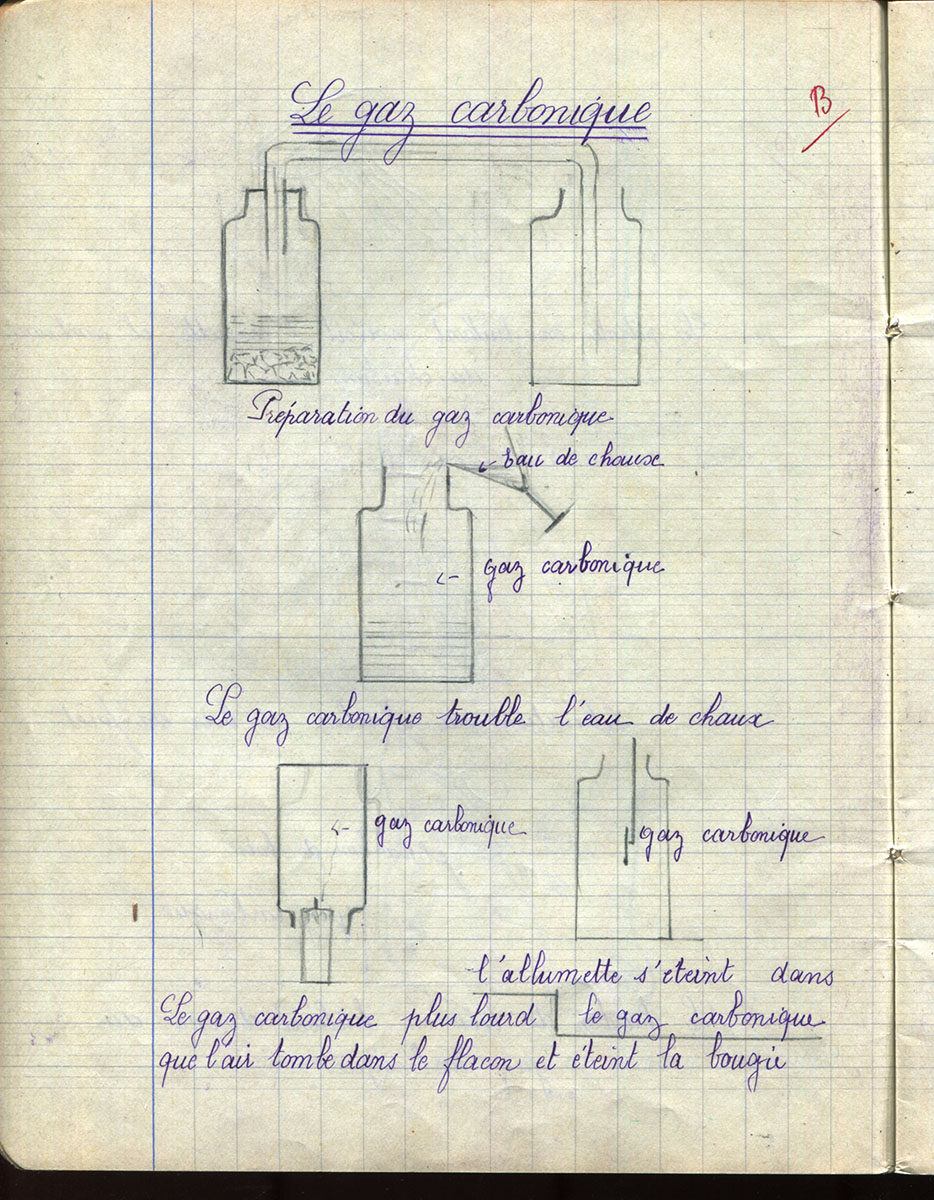 Le gaz carbonique
B
Préparation du gaz carbonique
eau de chaux
gaz carbonique
Le gaz carbonique trouble l'eau de chaux
gaz carbonique
gaz carbonique
l'allumette s'éteint dans
le gaz carbonique
Le gaz carbonique plus lourd
que l'air tombe dans le flacon et éteint la bougie